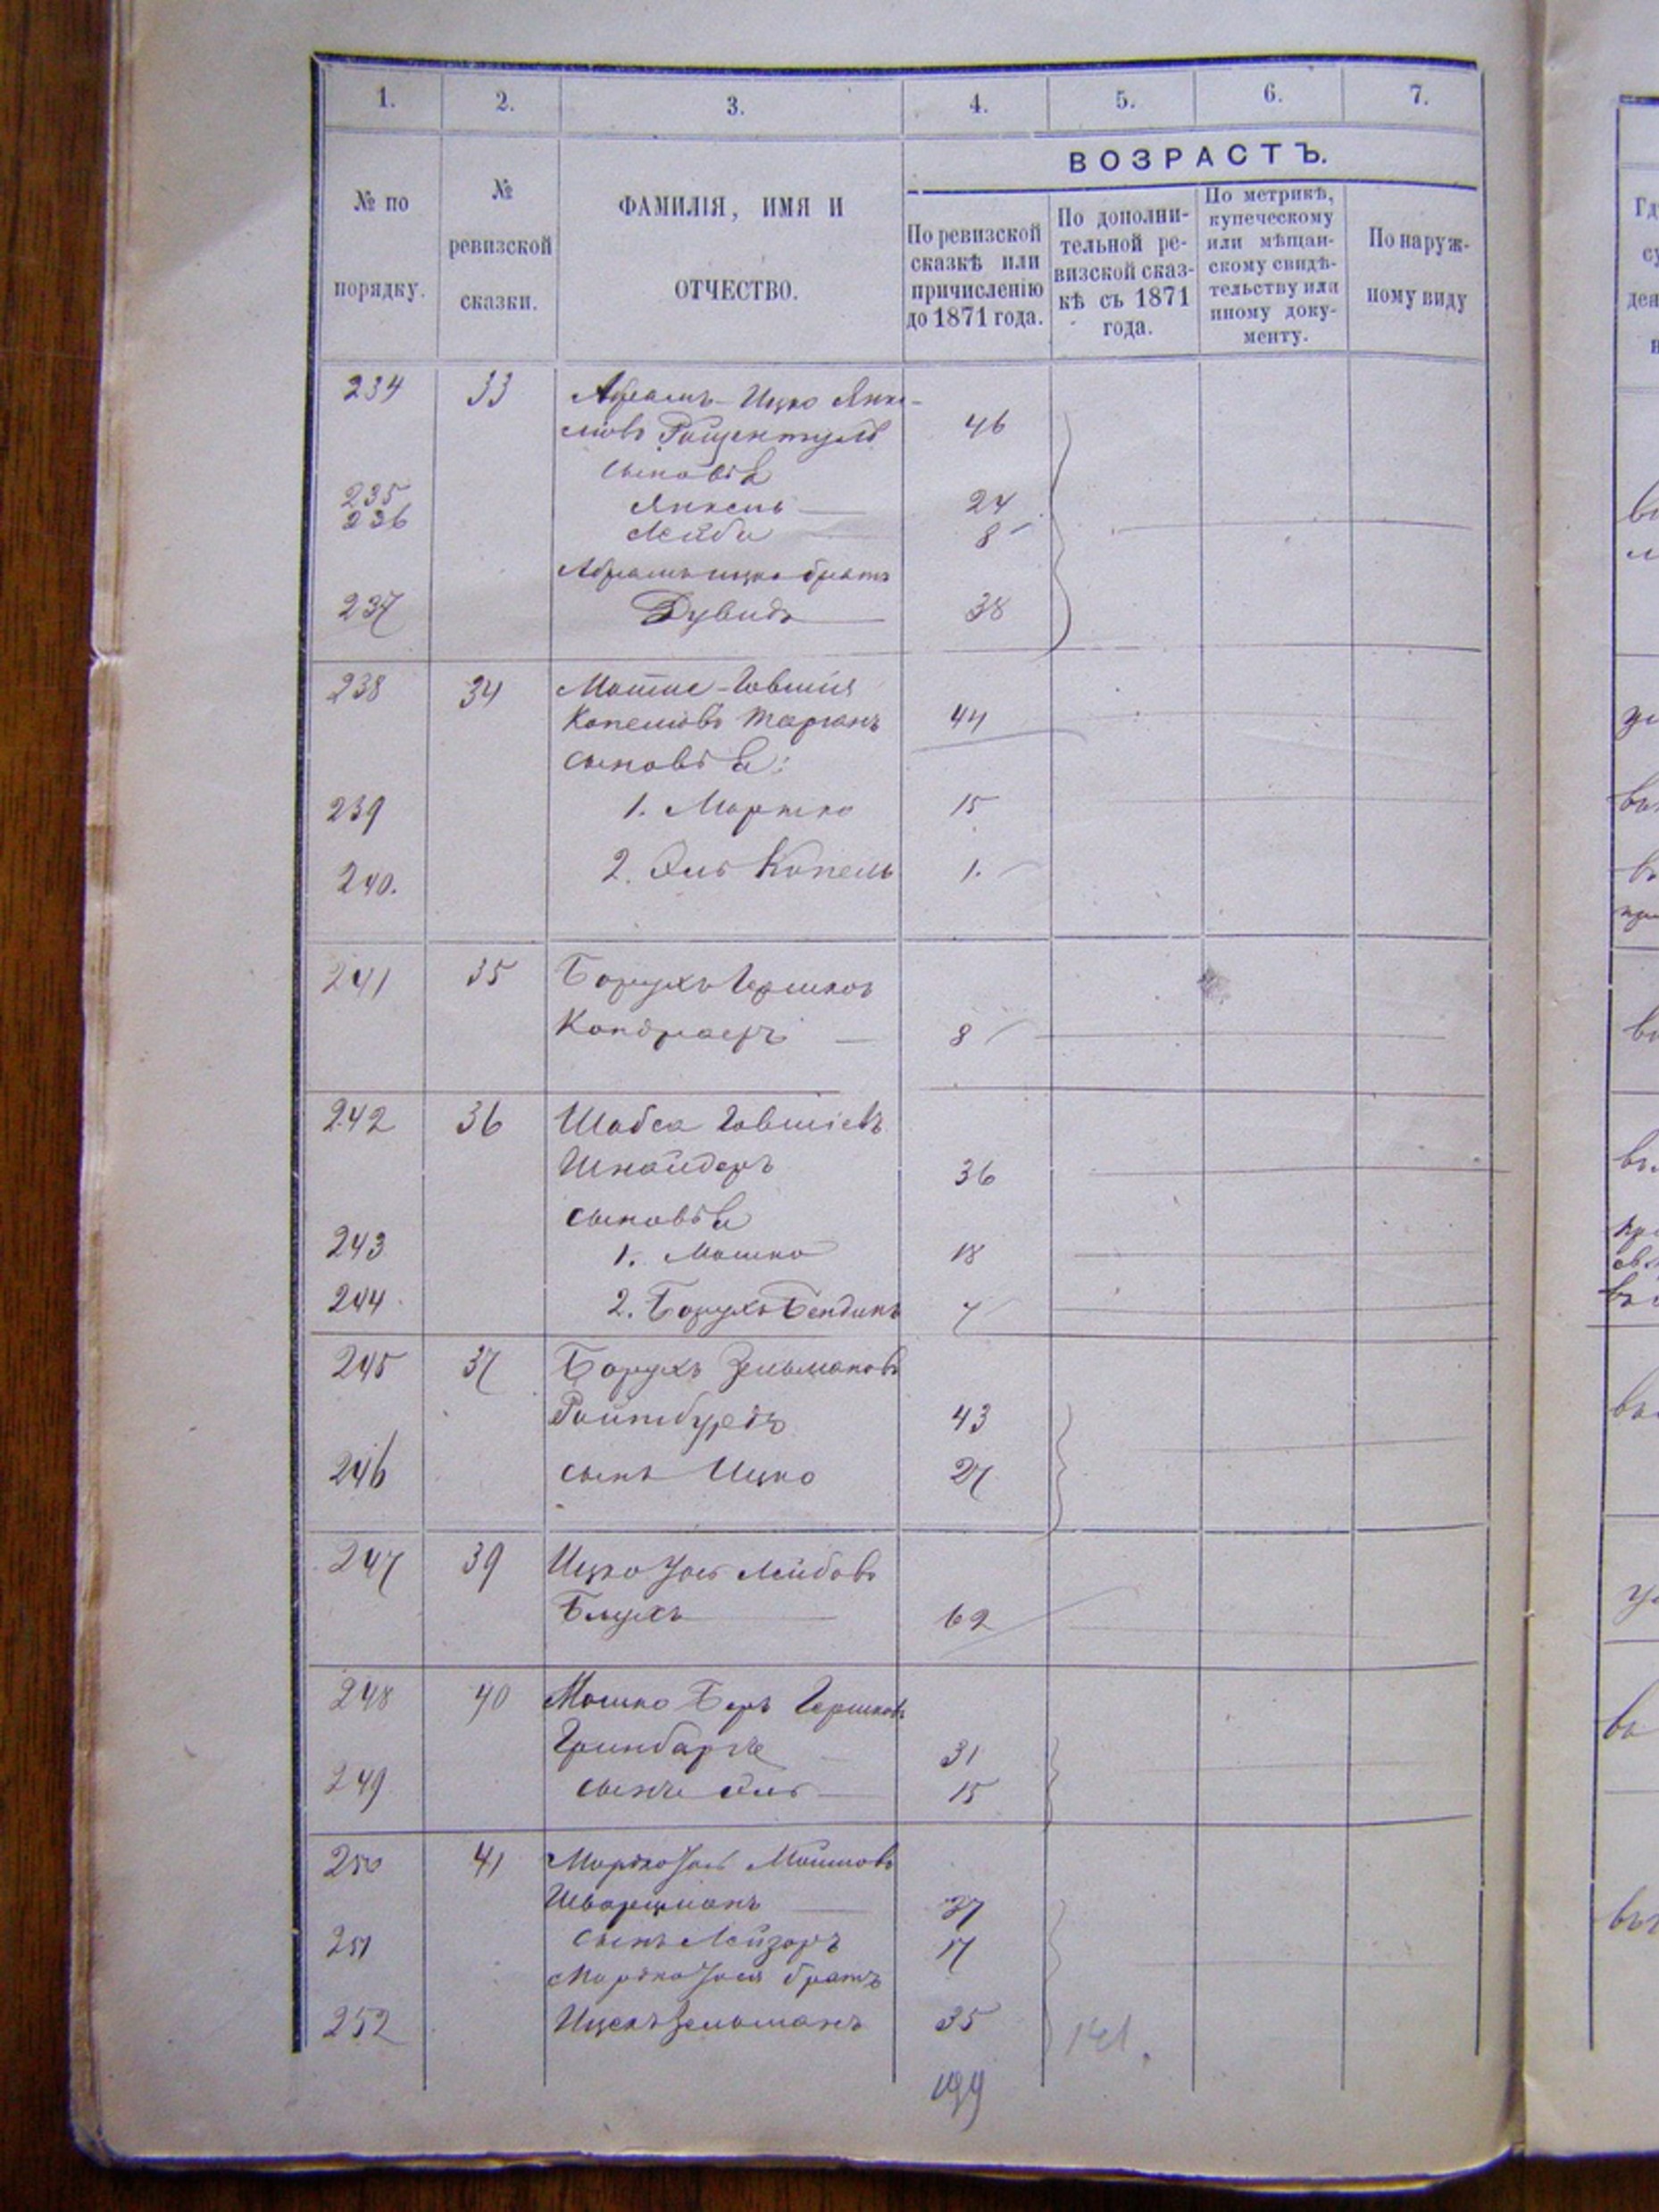 1. 2. 3. 4. 5. 6. 7.
ВОЗРАСТЪ.
№ по порядку.
№ ревизской сказки.
ФАМИЛІЯ, ИМЯ И ОТЧЕСТВО.
По ревизской сказкѣ или причисленію до 1871 года.
По дополнительной ревизской сказкѣ съ 1871 года.
По метрикѣ, купеческому или мѣщанскому свидѣтельству или иному документу.
По наружному виду
234 33 Абрамъ-Ицко Янке-
левъ 46
сыновья
235 Янкель 24
236 Лейба 8
Абрамъ ицка братъ
237 Дувидъ 38
238 34 Мотие-Говшия
Копелевъ Тарганъ 44
сыновья:
239 1. Мортко 15
240. 2. Эль Копель 1.
241 35 Борухъ Гершковъ
Кондраеръ 8
242 36 Шабса Говшіевъ
Шнайдеръ 36
сыновья
243 1. Мошко 18
244 2. Борухъ Бендитъ 7
245 37 Борухъ Зельмановъ
Ройтбурдъ 43
246 сынъ Ицко 27
247 39 Ицко Лейбовъ
62
248 40 Мошко Беръ Гершковъ
Гринбаргъ 31
249 сынъ Эль 15
250 41 Мордко Мошковъ
Шварцманъ 37
251 сынъ Лейзоръ 17
братъ
252 Ицекъ Зельманъ 35
141.
199